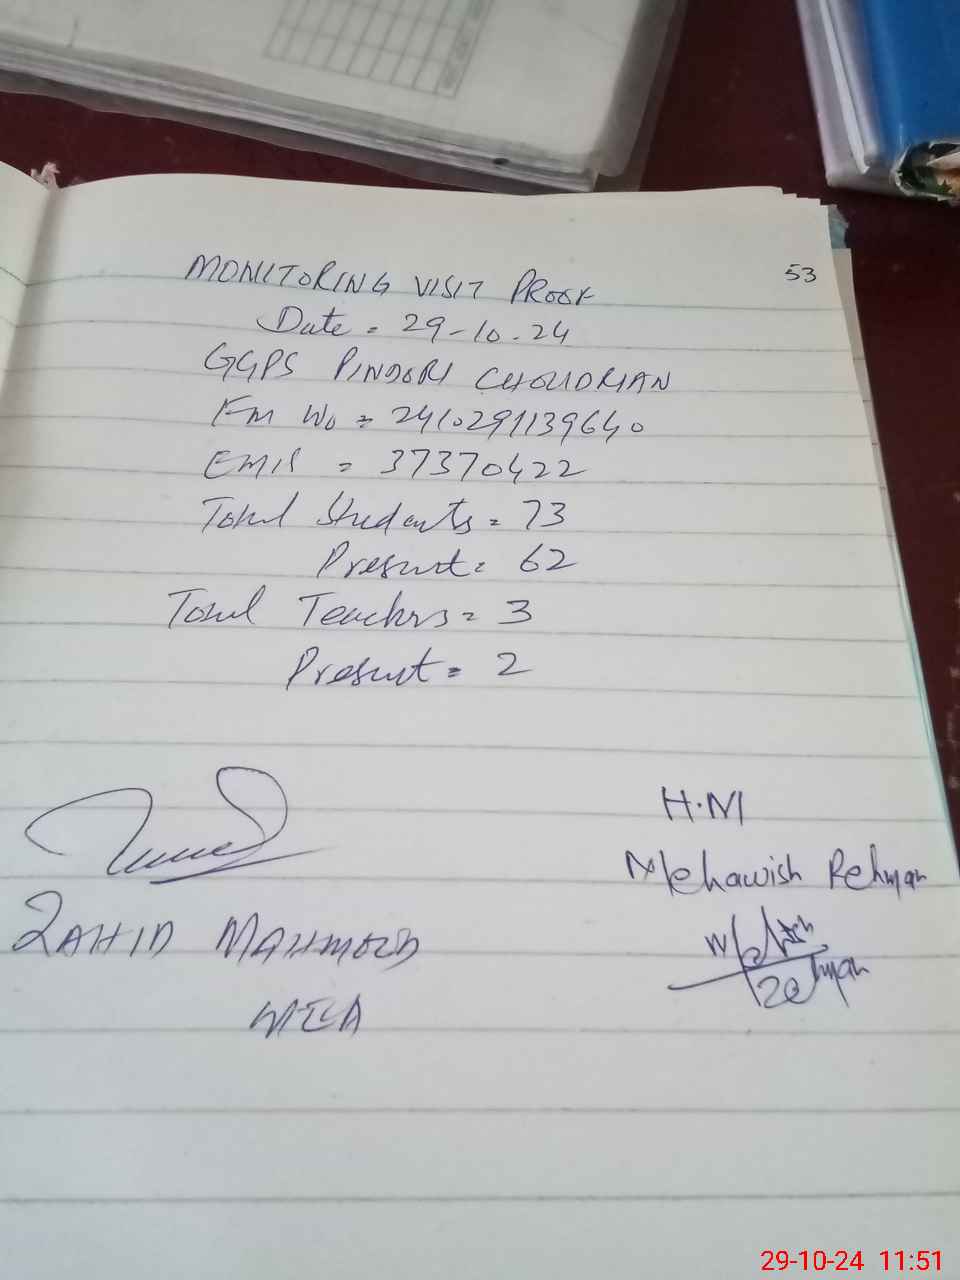 53
MONITORING VISIT PROOF
Date = 29-10-24
GGPS PINDORI CHOUDRIAN
FM No = 2410291139640
EMIS = 37370422
Total Students = 73
Present = 62
Total Teachers = 3
Present = 2
H.M
Mehawish Rehman
ZAHID MAHMOOD
29-10-24 11:51